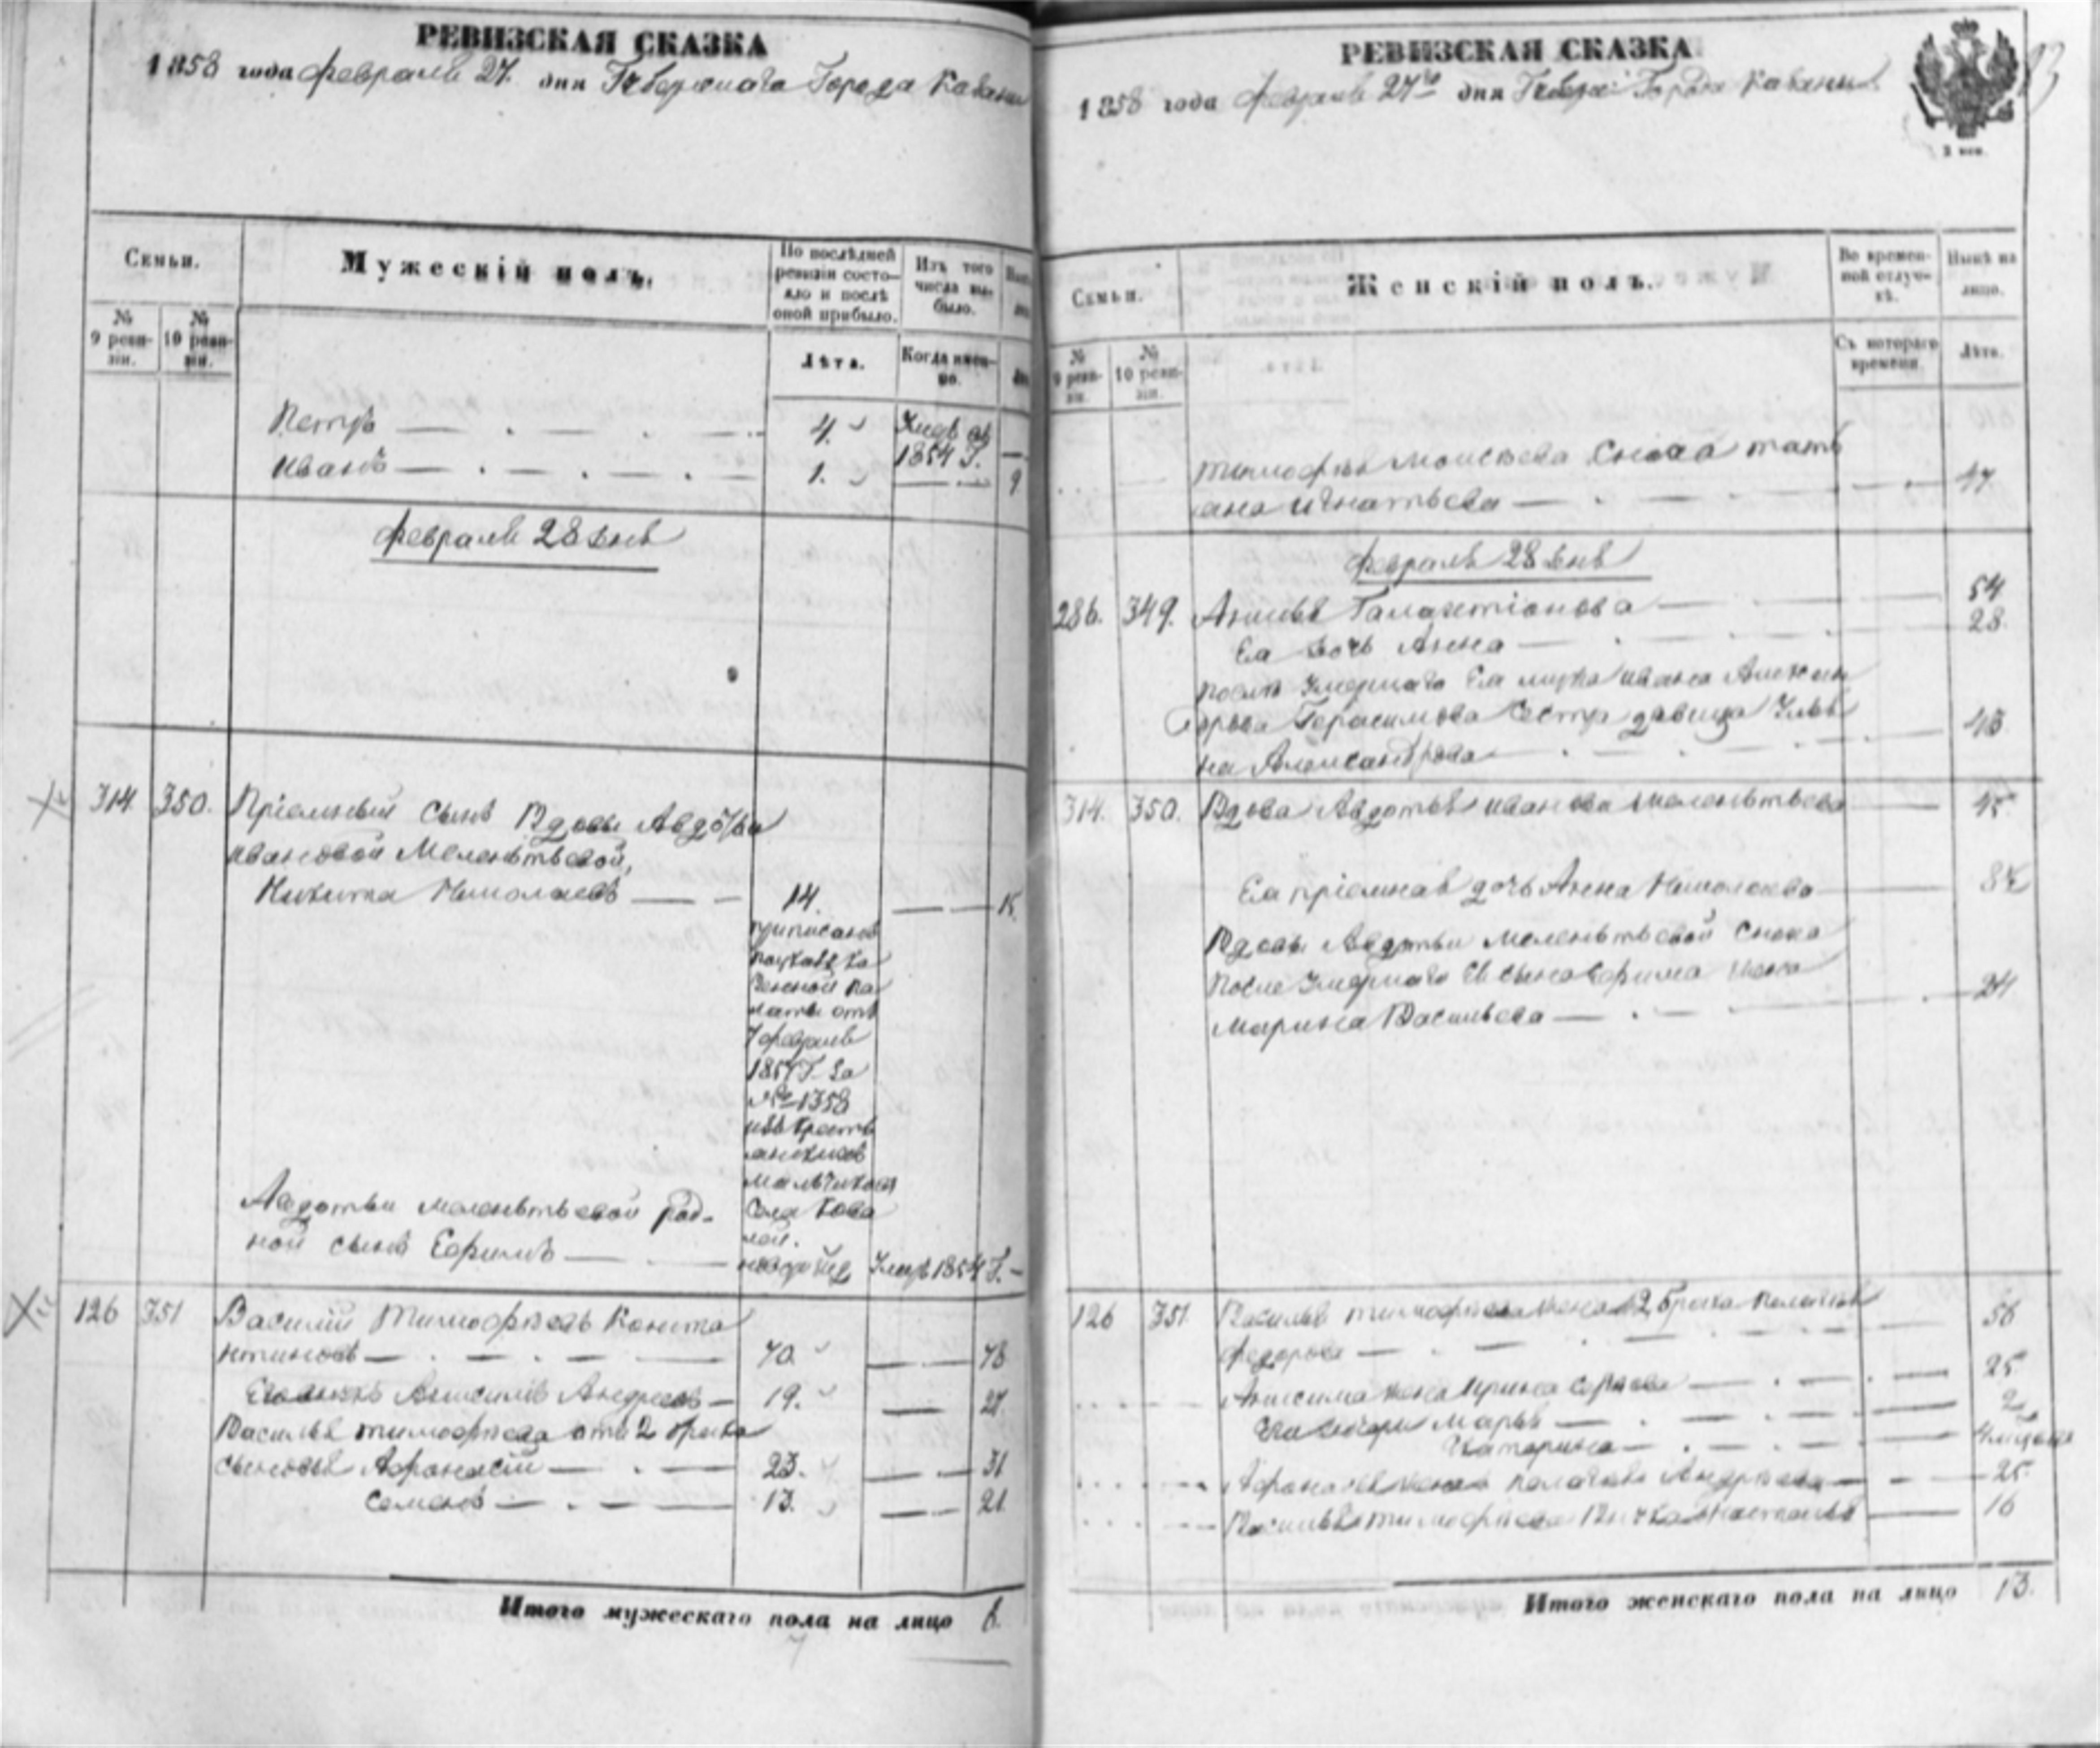 РЕВИЗСКАЯ СКАЗКА
1858 года Февраля 27. дня Губернскаго Города Казани
Семьи.
Мужескій полъ.
По послѣдней ревизіи состояло и послѣ оной прибыло.
Изъ того числа выбыло.
№ 9 ревизіи.
№ 10 ревизіи.
Лѣта.
Когда именно.
Петръ 4.
1854 Г.
Иванъ 1. 9
Февраля 28 дня
314. 350. Пріемный сынъ Вдовы Авдотьи
Ивановой Мелентьевой,
Никита Николаевъ 14.
приписанъ
по указу Ка
зенной Па
латы отъ
7 февраля
185 Г. За
№ 1358
изъ крестьянскихъ
мальчиковъ
Села
Авдотьи Мелентьевой род-
ной сынъ Ефимъ Умеръ 1854 Г.
126 351 Василий Тимофѣевъ Конста
нтиновъ 70. 78
Анисимъ Андреевъ 19. 27
Василья Тимофѣева отъ 2 брака
сыновья Афанасій 23. 31
Семенъ 13. 21.
Итого мужескаго пола на лицо
РЕВИЗСКАЯ СКАЗКА
1858 года Февраля 27го дня Губерн: Города Казани
Семьи.
Женскій полъ.
Во временной отлучкѣ.
Нынѣ на лицо.
№ 9 ревизіи.
№ 10 ревизіи.
Съ котораго времени
Лѣта.
Тимофѣя Моисеева Сноха Тать
яна Игнатьева 47
Февраля 28 дня
286. 349. Галактіонова 54
Ея дочь Анна 28.
После Умершаго Ея мужа Ивана Алексан
дрова Герасимова Сестра девица Улья
на Александрова
314. 350. Вдова Авдотья Иванова Мелентьева 45
Ея пріемная дочь Анна Николаева
Вдовы Авдотьи Мелентьевой Сноха
После Умершаго Ея сына Ефима жена
Марина Васильева 24
126 351. Василья Тимофѣева жена 2 брака Пелагея
Федорова 56
Анисима жена Ирина Сергѣева 25
Ихъ дочери Марья 2
Катерина
Афанасья жена Пелагея Андреева 25
Василья Тимофѣева Внучка Настасья 16
Итого женскаго пола на лицо 13.